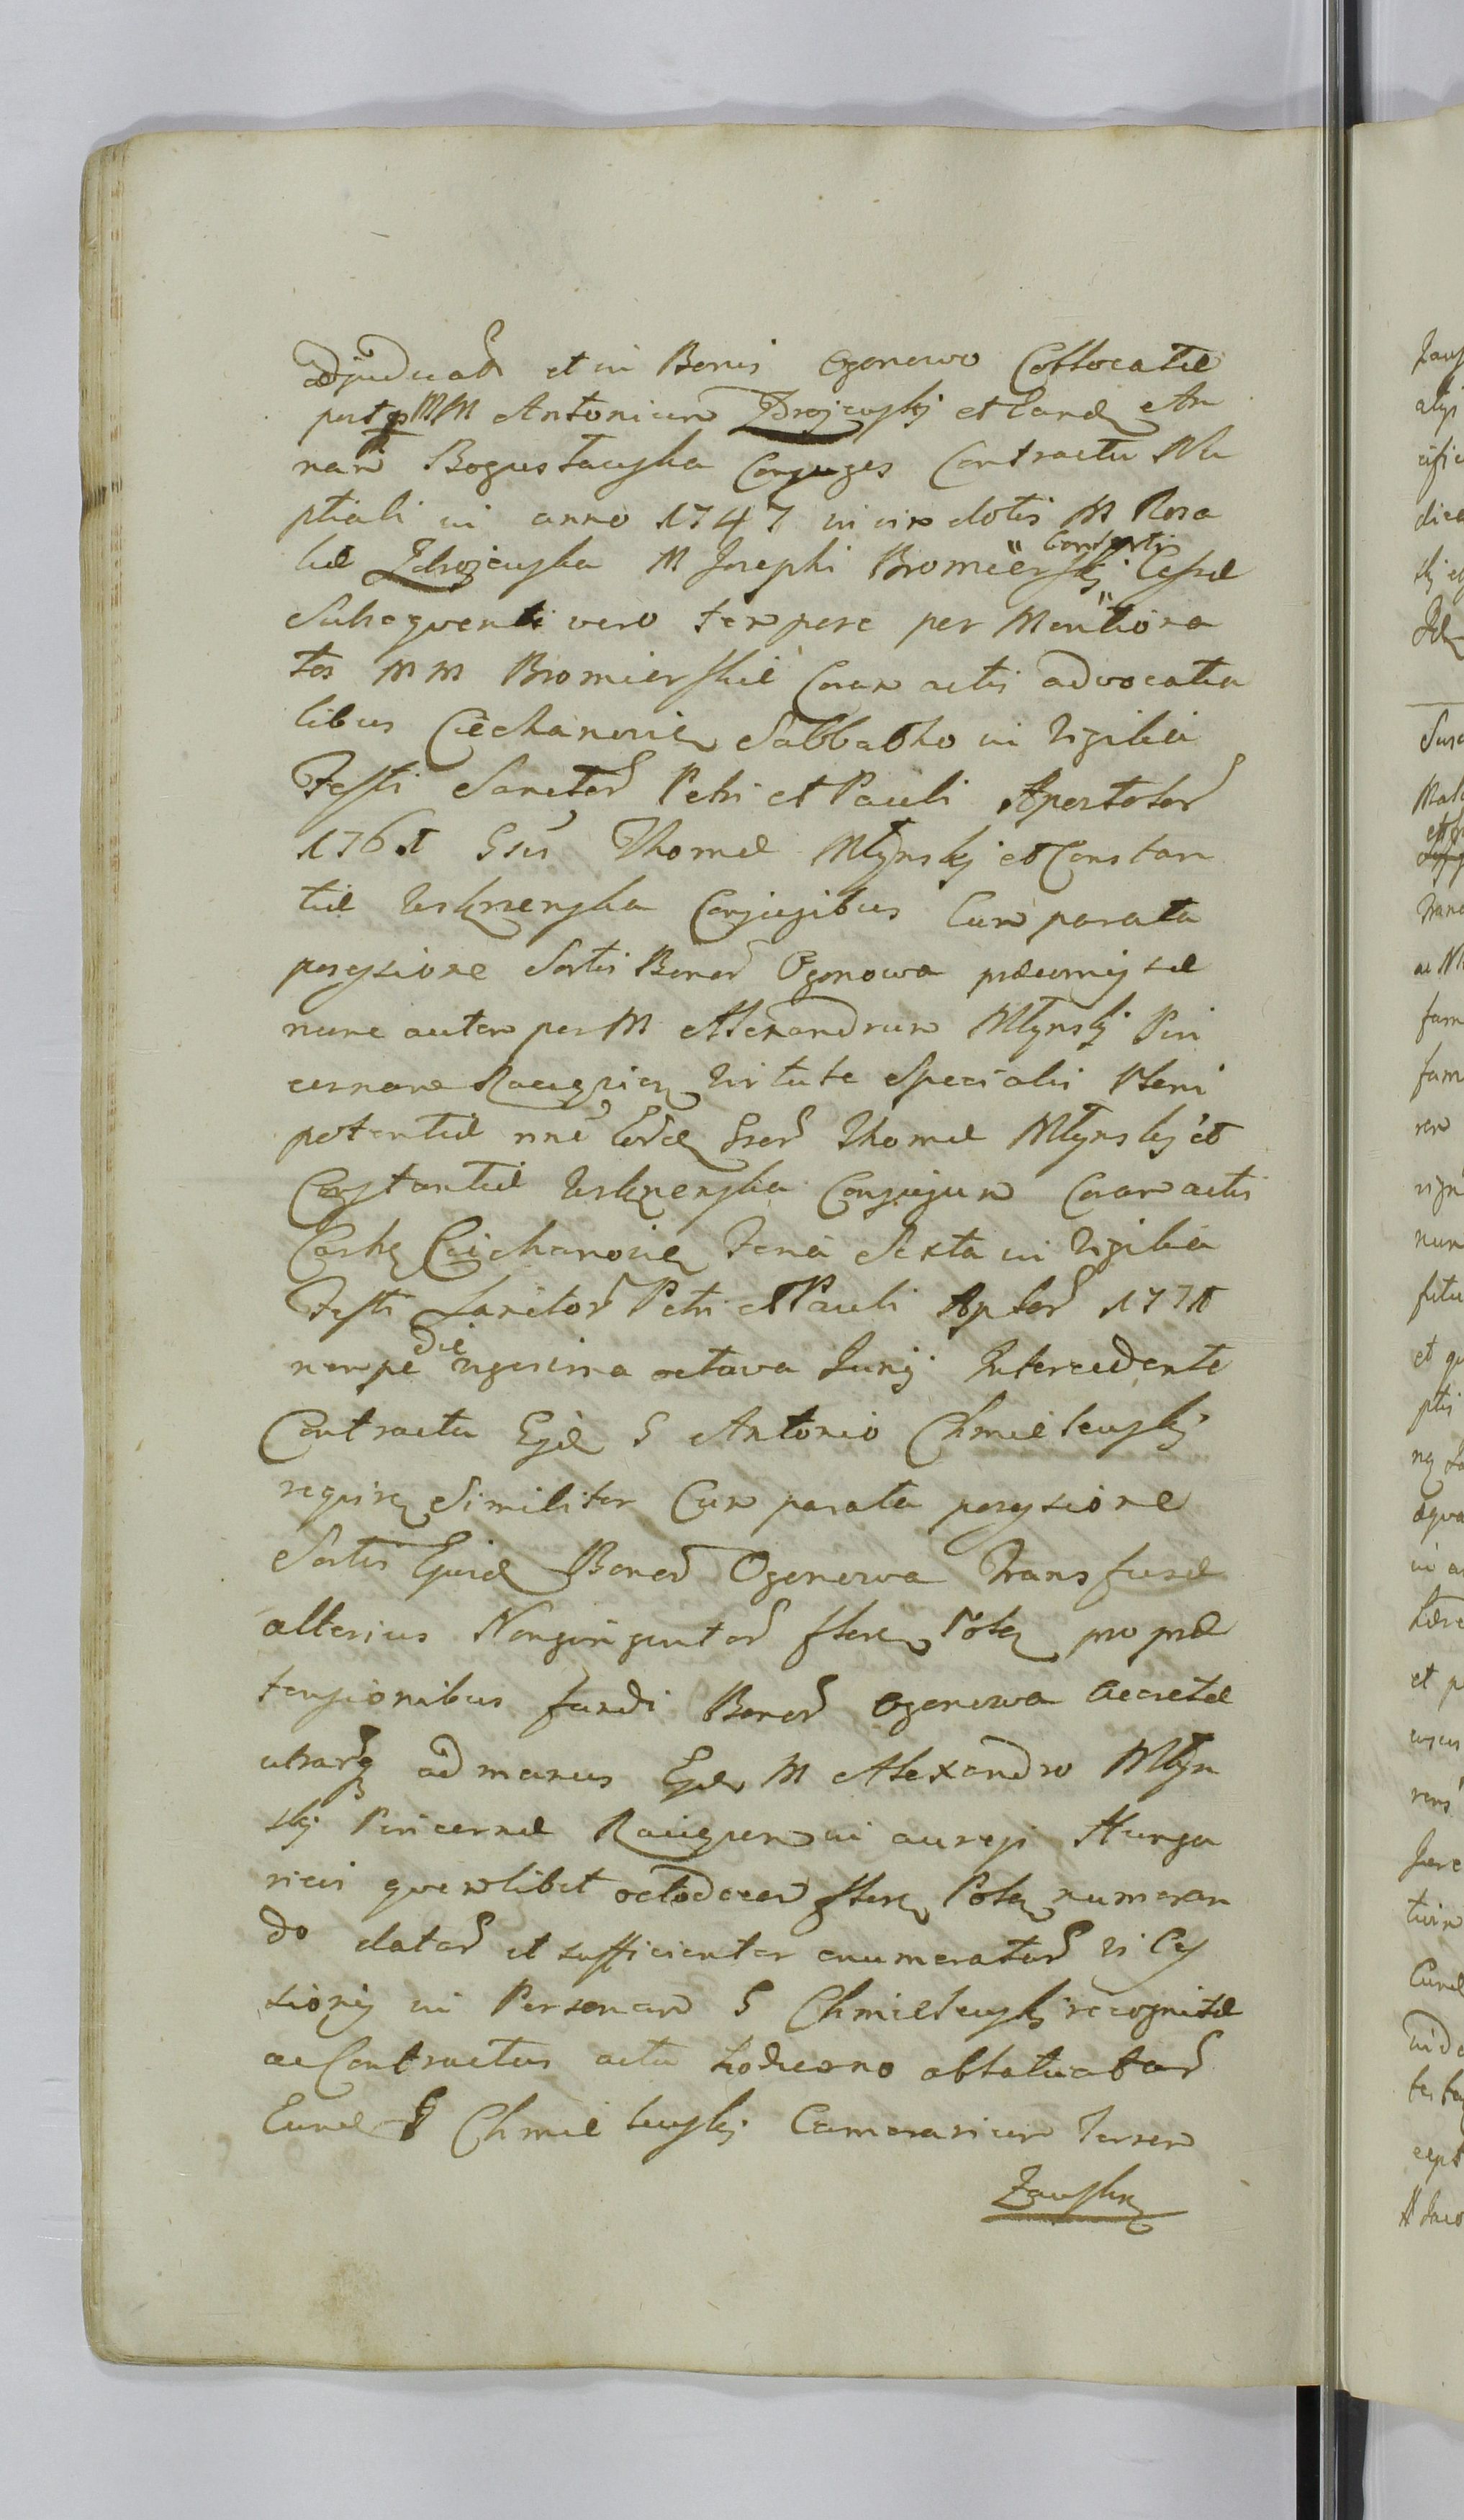 adjudicatæ et in Bonis Ogonowo Collocatæ
post MM Antonium Zdrojewskj et Eand An
nam Bogusławska Conjuges Contractu Nu
ptiali in anno 1747 in vim dotis M Rosa
liæ Zdrojewska M Josephi Bromierskj Consorti Cessæ
Subsequenti vero tempore per Mentiona
tos MM Bromierskie Coram actis advocatia
libus Ciechanovien Sabbatho in Vigilia
Festi Sanctor Petri et Pauli Apostolor
1761 Gsis Thomæ Młynskj et Constan
tiæ Conjugibus Cum parata
possessione Sortis Bonor Ogonowa præmissæ
nunc autem per M Alexandrum Młynskj Pin
cernam Racigzien Virtute Specialis Pleni
potentiæ nne Eord Gsor Thomæ Młynskj et
Constantiæ Conjugum Coram actis
Castr Ciechanovien Feria Sexta in Vigilia
Festi Sanctor Petri et Pauli Aplor 1771
nempe die vigesima octava Junij Intercedente
Contractu Ejd G Antonio Chmielewskj
requiren Similiter Cum parata possessione
Sortis Ejusd Bonor Ogonowa Transfusæ
alterius Nongingentor flore Pol pro præ
tensionibus fundi Bonor Ogonowa accretæ
utrarq ad manus Ejd M Alexandro Młyn
skj Pincernæ Raciązen in aureis Hunga
ricis quemlibet octodecem flore Pol numeran
do dator et sufficienter enumerator vi Ces
sionis in Personam G Chmielewskj recognitæ
ac Contractus actu hodierno oblatuator
Eund G Chmielewskj Camerarium Terren
Zawskrz